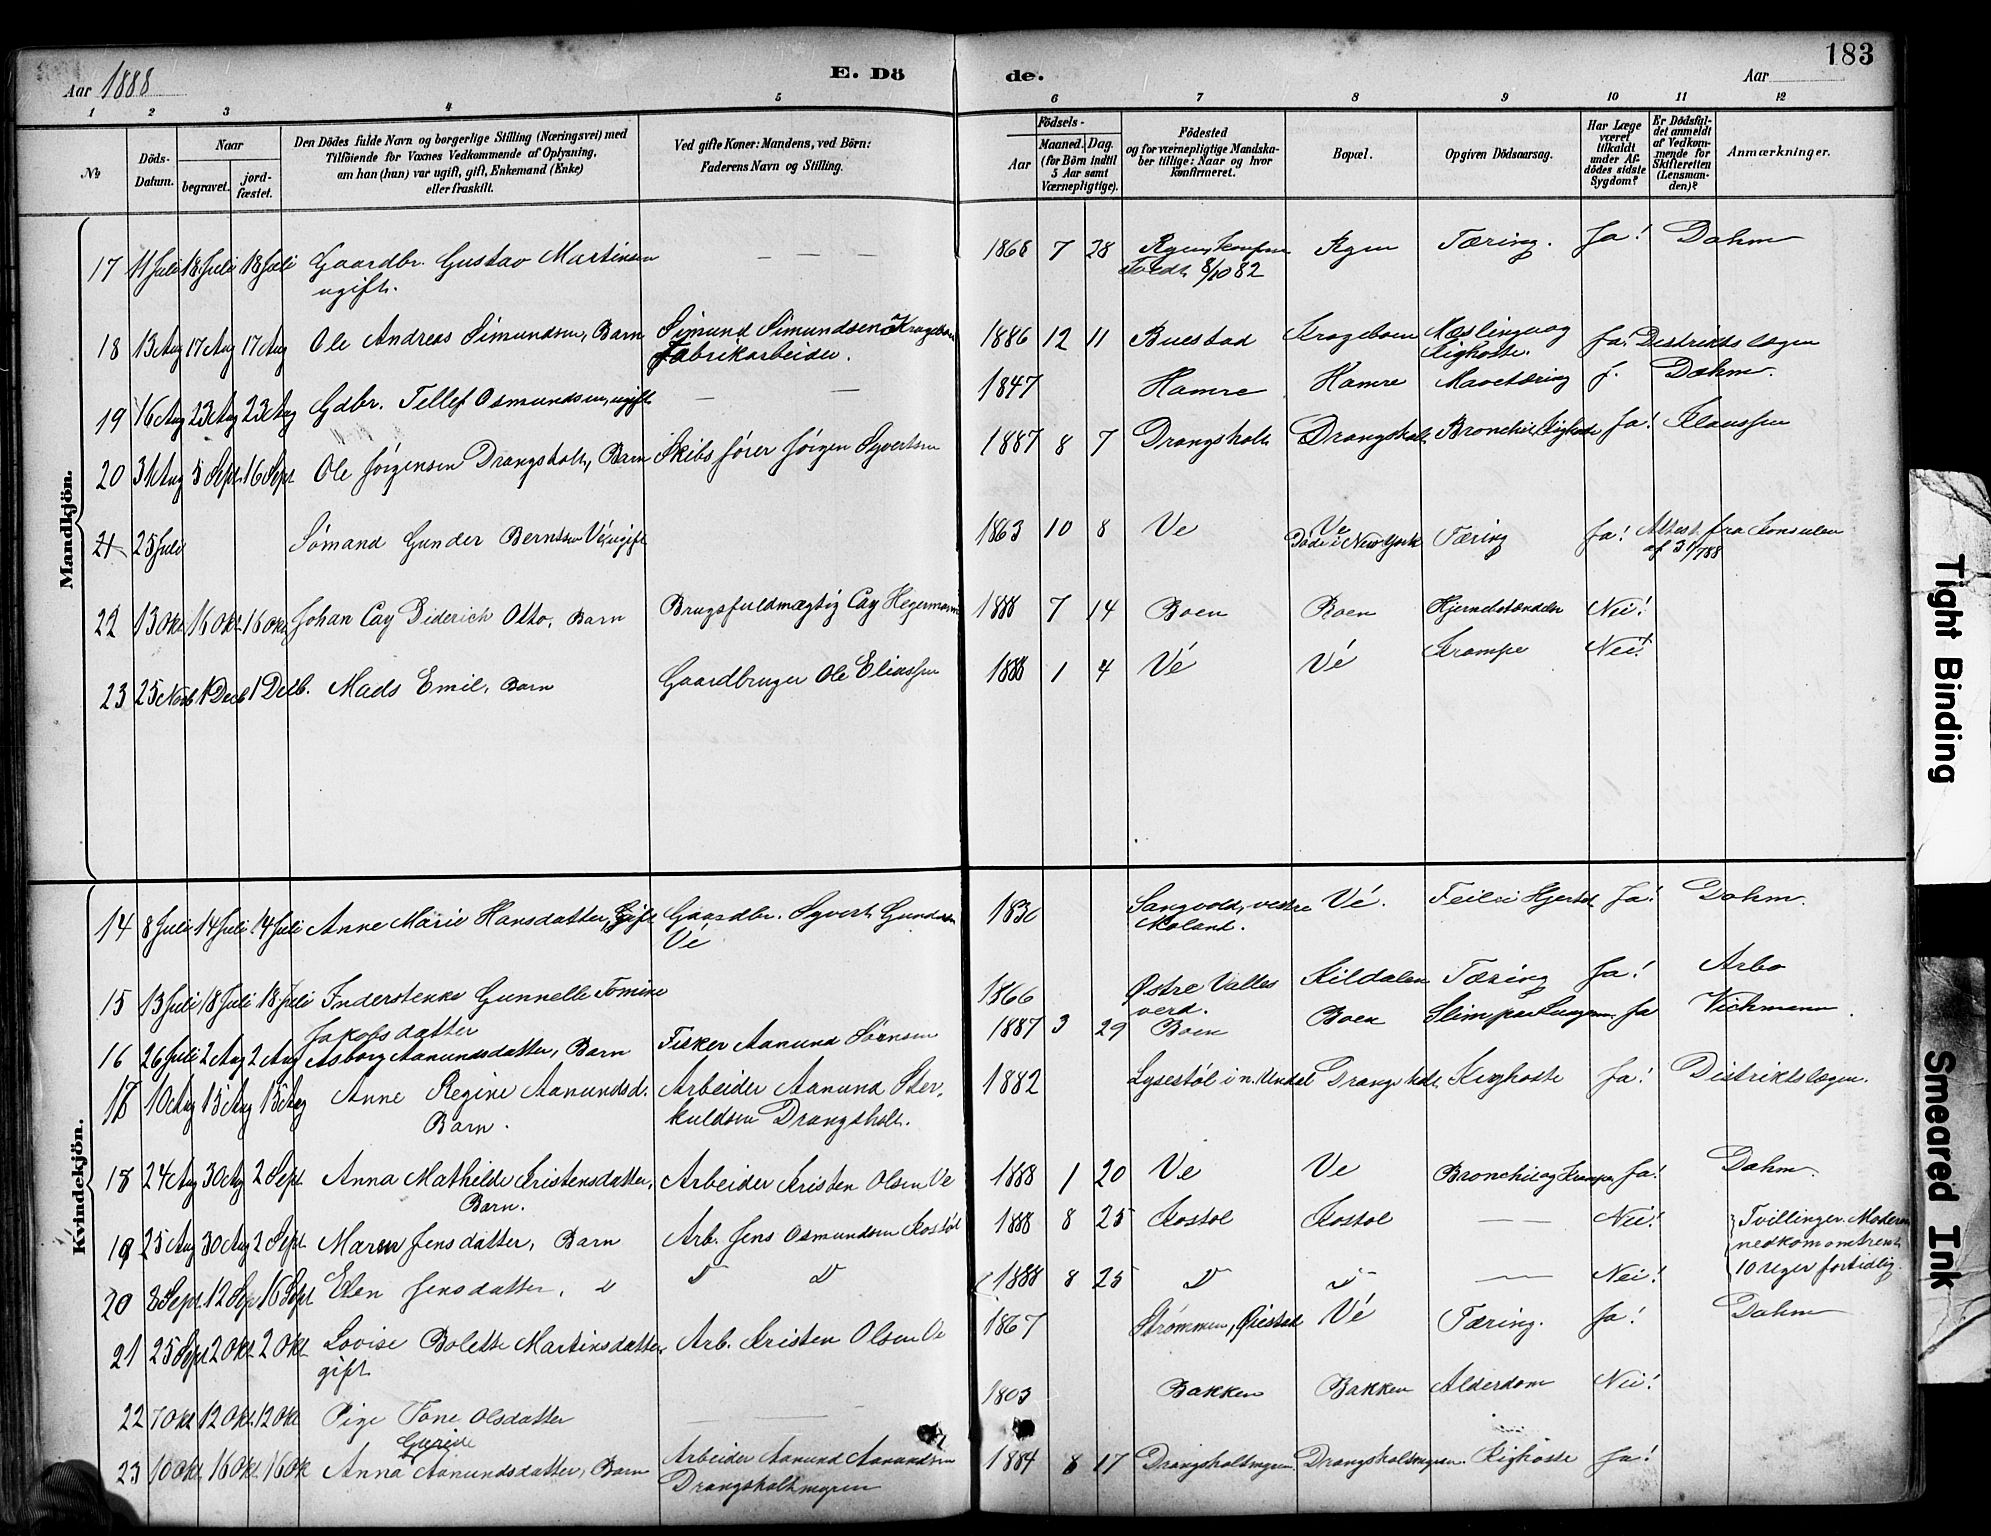 183
Aar 1888
E. Dö
de.
Aar
1 2 3 4 5 6 7 8 9 10 11 12
№
Döds-Datum.
Naar
begravet.
jord-fæstet.
Den Dödes fulde Navn og borgerlige Stilling (Næringsvei) med
Tilföiende for Voxnes Vedkommende af Oplysning,
om han (hun) var ugift, gift, Enkemand (Enke)
eller fraskilt.
Ved gifte Koner: Mandens, ved Börn:
Faderens Navn og Stilling.
Födsels-
Aar
Maaned. Dag.
(for Börn indtil
5 Aar samt
Værnepligtige).
Födested
og for værnepligtige Mandska-
ber tillige: Naar og hvor
konfirmeret.
Bopæl.
Opgiven Dödsaarsag.
Har Læge
været
tilkaldt
under Af-
dödes sidste
Sygdom?
Er Dödsfal-
det anmeldt
af Vedkom-
mende for
Skifteretten
(Lensman-
den)?
Anmærkninger.
Mandkjön.
17 11 Juli 18 Juli 18 Juli Gaardbr. Gustav Martinsen — — — 1868 7 28 Ryen, Konf. Ryen Tæring. Ja! Dahm
ugift. Tvedt 8/10 82
18 13 Aug 17 Aug 17 Aug Ole Andreas Simundsen, Barn Simund Simundsen Krageboen 1886 12 11 Buestad Krageboen Mæslinger og Ja! Distriktslægen
Fabrikarbeider. Kighoste.
19 16 Aug 23 Aug 23 Aug Gdbr. Tellef Osmundsen, ugift — — 1847 Hamre Hamre Mavetæring J. Dahm.
20 31 Aug 5 Sept 16 Sept Ole Jörgensen Drangsholt, Barn Skibsförer Jörgen Syvertsen 1887 8 7 Drangsholt Drangsholt Bronchit, Kighoste Ja! Klaussen
21 25 Juli Sömand Gunder Berntsen Vé, ugift 1863 10 8 Ve Ve Tæring Ja! Attest fra Konsulen
Döde i New York af 31/7 88
22 13 Okt 16 Okt 16 Okt Johan Cay Diderich Otto, Barn Brugsfuldmægtig Cay Hegermann 1888 7 14 Boen Boen Hjernebetændelse Nei!
23 25 Novb 1 Decb 1 Decb. Mads Emil, Barn Gaardbruger Ole Eliassen 1888 1 4 Vé Vé Krampe Nei!
Kvindekjön.
14 8 Juli 14 Juli 14 Juli Anne Marie Hansdatter, Gift Gaardbr. Syvert Gundersen 1830 Sangvold, vestre Vé. Feil i Hjertet Ja! Dahm.
Vé Moland.
15 13 Juli 18 Juli 18 Juli Inderstenke Gunnelle Tomine 1866 Østre Valles Kildalen Tæring Ja! Arbo
Jakobsdatter verd.
16 26 Juli 2 Aug 2 Aug Asborg Aanundsdatter, Barn Fisker Aanund Sörensen 1887 3 29 Boen Boen Slim paa Lungerne Ja Vichmann
17 10 Aug 15 Aug 15 Aug Anne Regine Aanundsd. Arbeider Aanund Ster- 1882 Lysestöl i n. Undal Drangsholt Kighoste Ja! Distriktslægen.
Barn. kuldsen Drangsholt.
18 24 Aug 30 Aug 2 Sept Anna Mathilde Kristensdatter, Arbeider Kristen Olsen Ve 1888 1 20 Ve Ve Bronchit og Krampe Ja! Dahm.
Barn.
19 25 Aug 30 Aug 2 Sept Maren Jensdatter, Barn Arb. Jens Osmundsen Kostöl 1888 8 25 Kostöl Kostöl — — Nei! Tvillinger. Moderen
nedkom omtrent
20 8 Sept 12 Sept 16 Sept Elen Jensdatter, D D D 1888 8 25 D D — Nei! 10 Uger fortidlig.
21 25 Sept 2 Okt 2 Okt Lovise Bolette Martinsdatter, Arb. Kristen Olsen Ve 1867 Strömmen, Øiestad Vé Tæring. Ja! Dahm
gift
22 7 Okt 12 Okt 12 Okt Pige Tone Olsdatter — — 1803 Bakken Bakken Alderdom Nei!
Gurine
23 10 Okt 16 Okt 16 Ok Anna Aanundsdatter, Barn Arbeider Aanund Aanundsen 1884 8 17 Drangsholtmyren Drangsholtmyren. Kighoste Ja!
Drangsholtmyren
Tight Binding
Smeared Ink